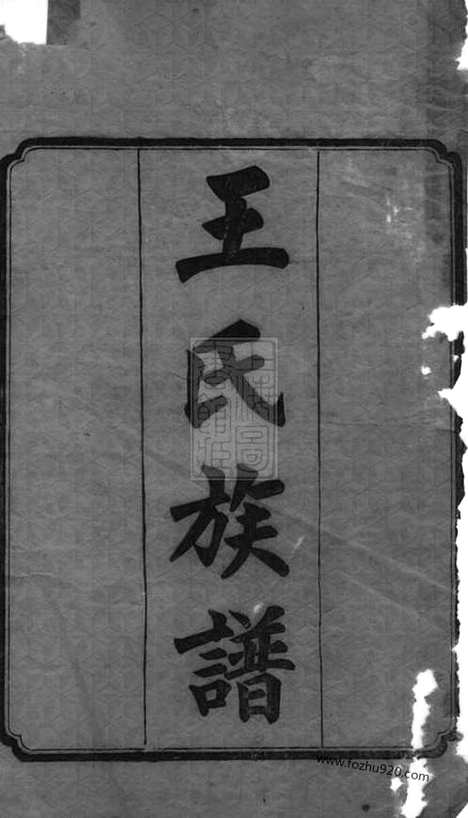 王氏族譜
www.fozhu920.com